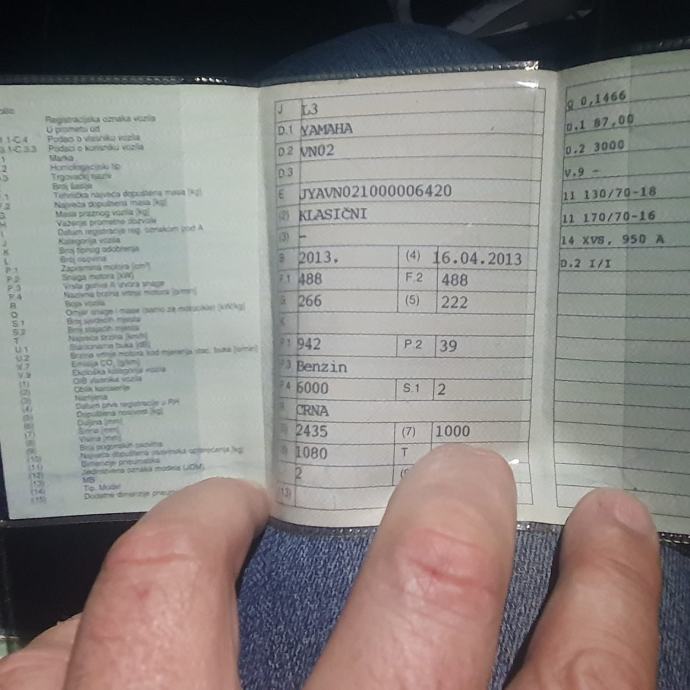 Registracijska oznaka vozila
U prometu od
C.1.1-C.4 Podaci o vlasniku vozila
C.3.1-C.3.3 Podaci o korisniku vozila
Marka
Homologacijski tip
Trgovački naziv
Broj šasije
Tehnička najveća dopuštena masa [kg]
Najveća dopuštena masa [kg]
Masa praznog vozila [kg]
Važenje prometne dozvole
Datum registracije reg. oznakom pod A
J Kategorija vozila
K Broj tipnog odobrenja
L Broj osovina
P.1 Zapremina motora [cm³]
P.2 Snaga motora [kW]
P.3 Vrsta goriva ili izvora snage
P.4 Nazivna brzina vrtnje motora [o/min]
R Boja vozila
Q Omjer snage i mase (samo za motocikle) [kW/kg]
S.1 Broj sjedećih mjesta
S.2 Broj stajaćih mjesta
T Najveća brzina [km/h]
U.1 Stacionarna buka [dB]
U.2 Brzina vrtnje motora kod mjerenja stac. buke [o/min]
V.7 Emisija CO₂ [g/km]
V.9 Ekološka kategorija vozila
(1) OIB vlasnika vozila
(2) Oblik karoserije
(3) Namjena
(4) Datum prve registracije u RH
(5) Dopuštena nosivost [kg]
(6) Duljina [mm]
(7) Širina [mm]
(8) Visina [mm]
(9) Broj pogonskih osovina
(10) Najveća dopuštena osovinska opterećenja [kg]
(11) Dimenzije pneumatika
(12) Jedinstvena oznaka modela (JOM)
(13) MB
(14) Tip, Model
(15) Dodatne dimenzije
J L3
D.1 YAMAHA
D.2 VN02
D.3
E JYAVN021000006420
(2) KLASIČNI
(3) -
B 2013. (4) 16.04.2013
F.1 488 F.2 488
G 266 (5) 222
K
P.1 942 P.2 39
P.3 Benzin
P.4 6000 S.1 2
R CRNA
2435 (7) 1000
1080 T
2
(13)
Q 0,1466
U.1 87,00
U.2 3000
V.9 -
11 130/70-18
11 170/70-16
14 XVS, 950 A
D.2 I/I